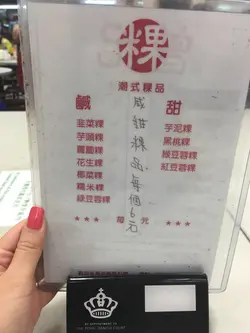 粿
潮式粿品
鹹
韭菜粿
芋頭粿
蘿蔔粿
花生粿
椰菜粿
糯米粿
綠豆蓉粿
★★★
咸甜粿品每個6元
每 元
甜
芋泥粿
黑桃粿
綠豆蓉粿
紅豆蓉粿
★★★